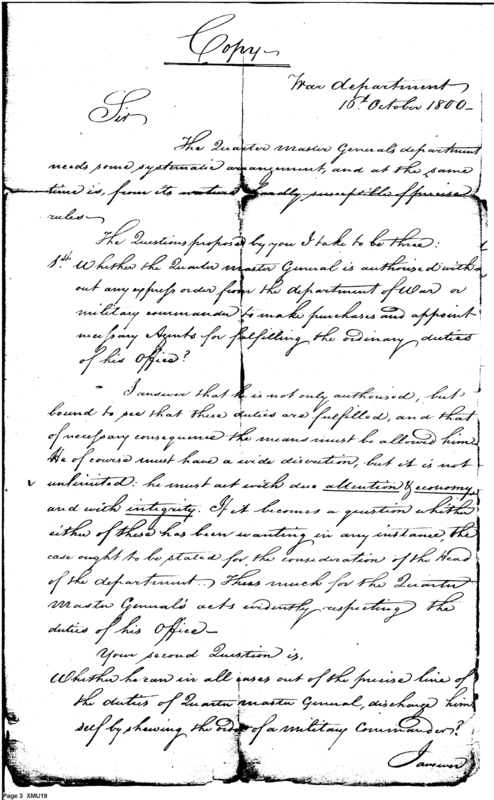 Copy
War department
16th October 1800-
Sir
The Quarter Master Generals department
needs some systematic arrangement, and at the same
time is, from its nature hardly susceptible of precise
rules-
The Questions proposed by you I take to be three:
1st Whether the Quarter master General is authorised with
out any express order from the department of War or
military commander to make purchases and appoint
necessary Agents for fulfilling the ordinary duties
of his Office?
I answer that he is not only authorised, but
bound to see that these duties are fulfilled, and that
of necessary consequence the means must be allowed him
He of course must have a wide discretion, but it is not
unlimited: he must act with due attention & economy,
and with integrity. If it becomes a question whether
either of these has been wanting in any instance, the
case ought to be stated for the consideration of the Head
of the department. Thus much for the Quarter
Master General's acts evidently respecting the
duties of his Office-
Your second Question is,
Whether he can in all cases out of the precise line of
the duties of Quarter master General, discharge him
self by shewing the order of a military Commander?
I answer
Page 3 XMU19